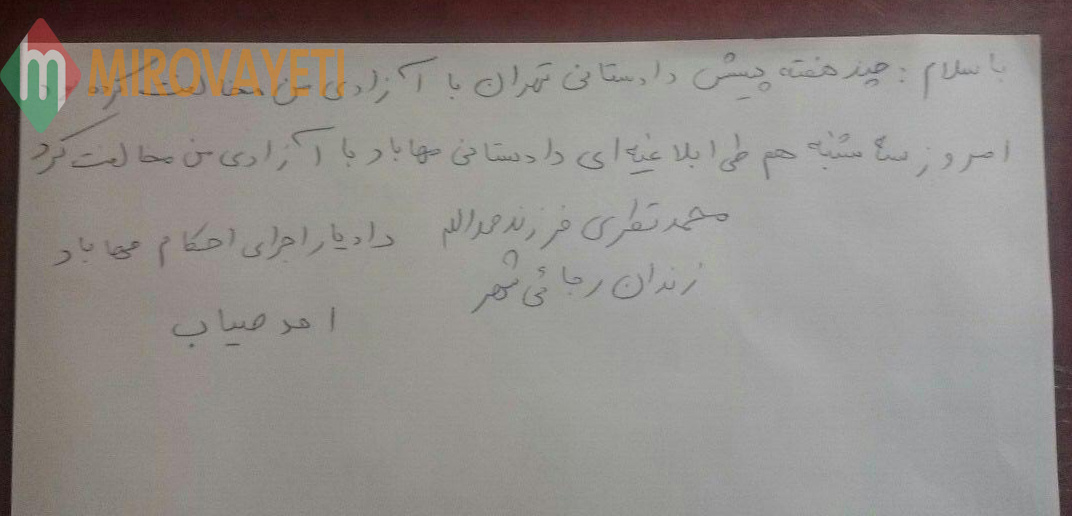 MIROVAYETI
با سلام : چند هفته پیش دادستانی تهران با آزادی من مخالفت کرده
امروز سه شنبه هم طی ابلاغیه ای دادستانی مهاباد با آزادی من مخالفت کرد
محمد نظری فرزند عبدالله
دادیار اجرای احکام مهاباد
زندان رجائی شهر